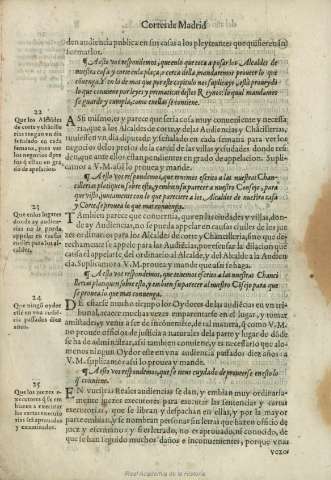 Cortes de Madrid
den audiencia publica en sus casas a los pleyteantes que quisieren in
formarlos.
¶ A esto vos respondemos, que en lo que toca a posar los Alcaldes de
nuestra casa y corte en la plaça, o cerca della mandaremos proueer lo que
conuenga. Y en lo de mas que por esta se nos suplica està proueydo
lo que conuiene por leyes y prematicas destos Reynos: lo qual mandamos
se guarde y cumpla, como en ellas se contiene.
22
Que los Alcaldes
de corte y chãcille
rias tengan en dia
señalado en cada
semana, para ver
los negocios de
à ellas en gra
do de apelacion
ASsi mismo, y parece que seria cosa muy conueniente y necessa
ria, que a los Alcaldes de corte, y de las Audiencias y Chãcillerias,
huuiesse vn dia diputado y señalado en cada semana para ver los
negocios de los presos de la carcel de las villas y ciudades donde resi
den, que ante ellos estan pendientes en grado de apelacion. Suplica
mos a V. M. assi lo prouea y mande.
¶ A esto vos respondemos, que tenemos escrito a las nuestras Chan
cillerias platiquen sobre esto, y embien su parecer a nuestro Consejo, para
que visto, juntamente con lo que pareciere a los Alcaldes de nuestra casa
y Corte se prouea lo que mas conuenga.
23
Que en los lugares
donde ay audien
cias no se pueda
apelar en causas
ciuiles para los al
caldes.
TAmbien parece que conuernia, que en las ciudades y villas, don
de ay Audiencias, no se pueda apelar en causas ciuiles de los jue
zes ordinarios para los Alcaldes de corte y Chancillerias, sino que de
rechamente se apele para las Audiẽcias, por escusar la dilacion que
causa el apelar del ordinario al Alcalde, y del Alcalde a la Audiẽ
cia. Suplicamos a V. M. prouea y mande que assi se haga.
¶ A esto vos respondemos, que tenemos escrito a las nuestras Chanci
llerias platiquen sobre esto, y embien su parecer al nuestro Cõsejo para que
se prouea lo que mas conuenga.
24
Que ningũ oydor
estè en vna audiẽ
cia passados diez
años.
DE estarse mucho tiempo los Oydores de las audiẽcias en vn tri
bunal, acaece muchas vezes emparentarse en el lugar, y tomar
amistades, y venir a ser de inconueniente, de tal manera, q̃ como V. M.
no prouee oficios de justicia a naturales de la parte y lugar de dõde
se ha de administrar, assi tambien conuiene, y es necessario que alo
menos ningun Oydor este en vna audiencia passados diez años: a
V. M. suplicamos assi lo prouea y mande.
¶ A esto vos respondemos, que se terna cuydado de proueerse en esto lo
q̃ conuiene.
25
Que los receptores
executores q̃ se em
biaren a executar
las cartas executo
rias sean aprouados
y examinados.
EN vuestras Reales audiencias se dan, y embian muy ordinaria
mente juezes executores para executar las sentencias y cartas
executorias, que se libran y despachan en ellas, y por la mayor
parte se embian, y se nombran personas sin letras que hazen oficio de
juez y escriuano: y si es letrado, no es aprouado, ni conocido, de
que se han seguido muchos daños e inconuenientes, porque vnas
vezes
Real Academia de la Historia